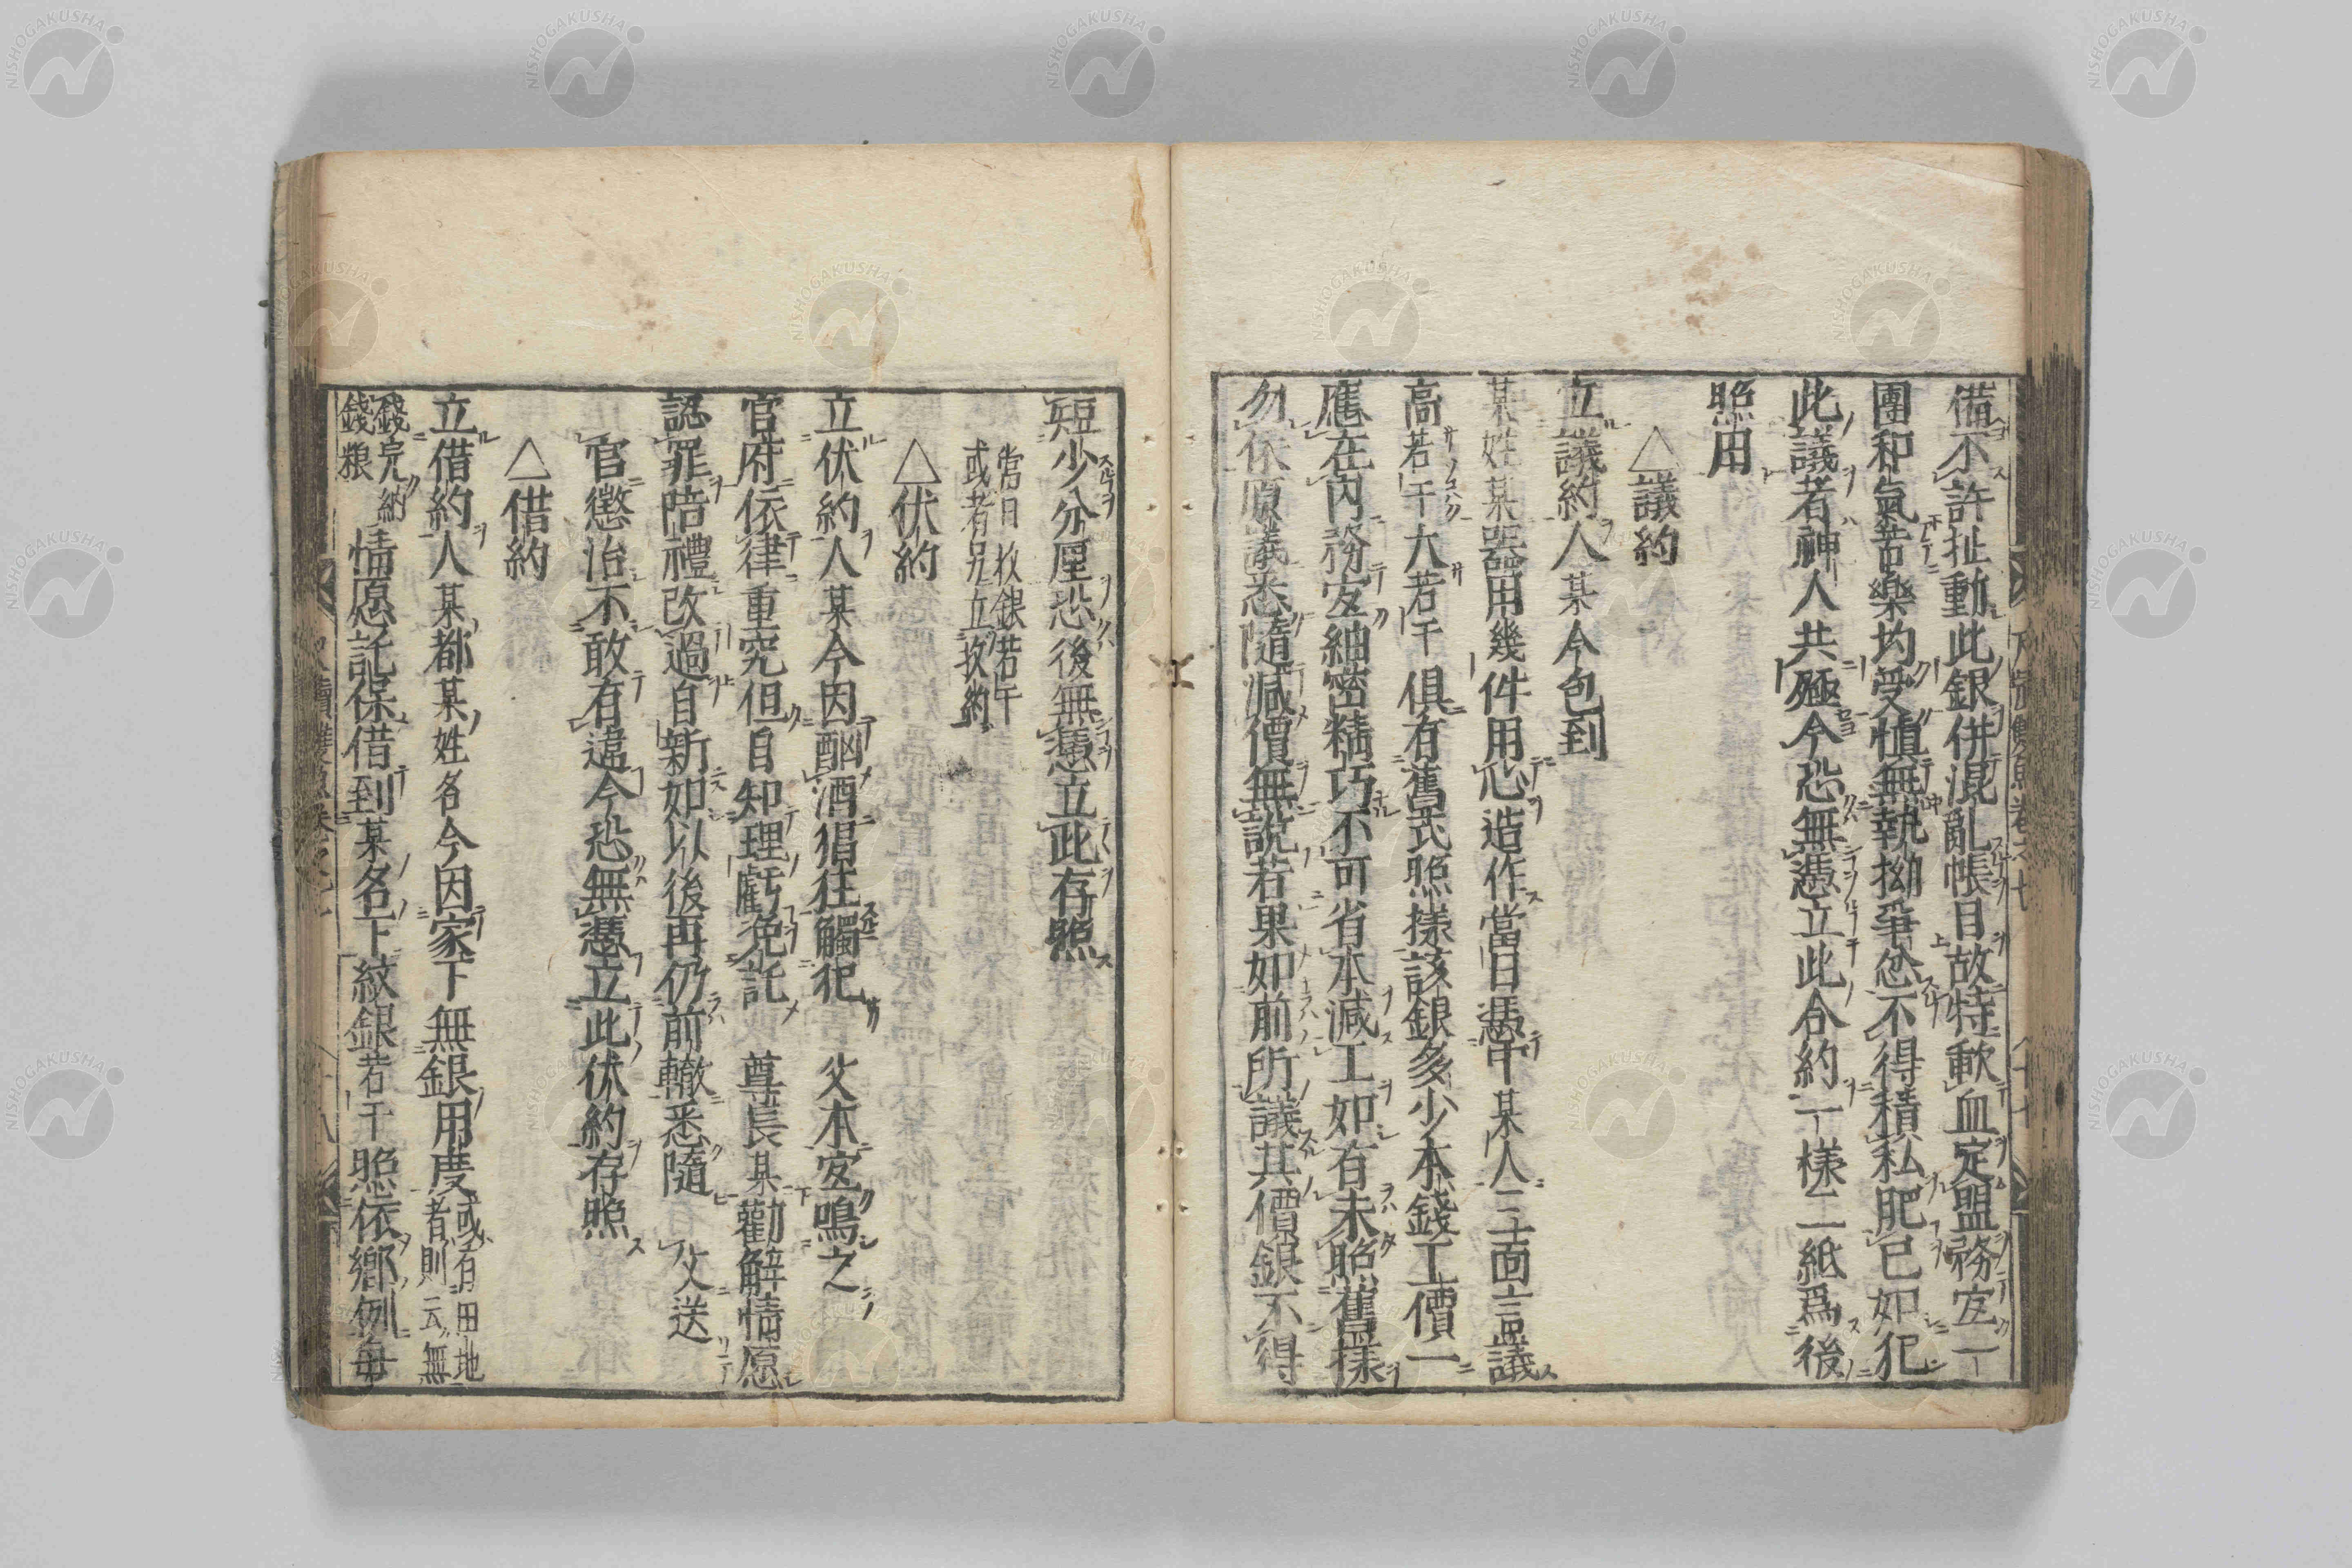 備不許扯動此銀併混亂帳目故特歃血定盟務宜一
團和氣苦樂均受愼無執拗爭忿不得積私肥己如犯
此議者神人共殛今恐無憑立此合約一樣二紙爲後
照用
△議約
立議約人某今包到
某姓某器用幾件用心造作當日憑中某人三面言議
高若干大若干俱有舊式照樣該銀多少本錢工價一
應在內務宜紬密精巧不可省本減工如有未照舊樣
勿依原議悉隨減價無說若果如前所議其價銀不得
短少分厘恐後無憑立此存照
當日收銀若干
或者另立收約
△伏約
立伏約人某今因酗酒猖狂觸犯 父本宜鳴之
官府依律重究但自知理虧免託 尊長某勸解情愿
認罪陪禮改過自新如以後再仍前轍悉隨 父送
官懲治不敢有違今恐無憑立此伏約存照
△借約
立借約人某都某姓名今因家下無銀用度或有田地者則云無
錢完納錢粮情愿託保借到某名下紋銀若干照依鄉例每
NISHOGAKUSHA